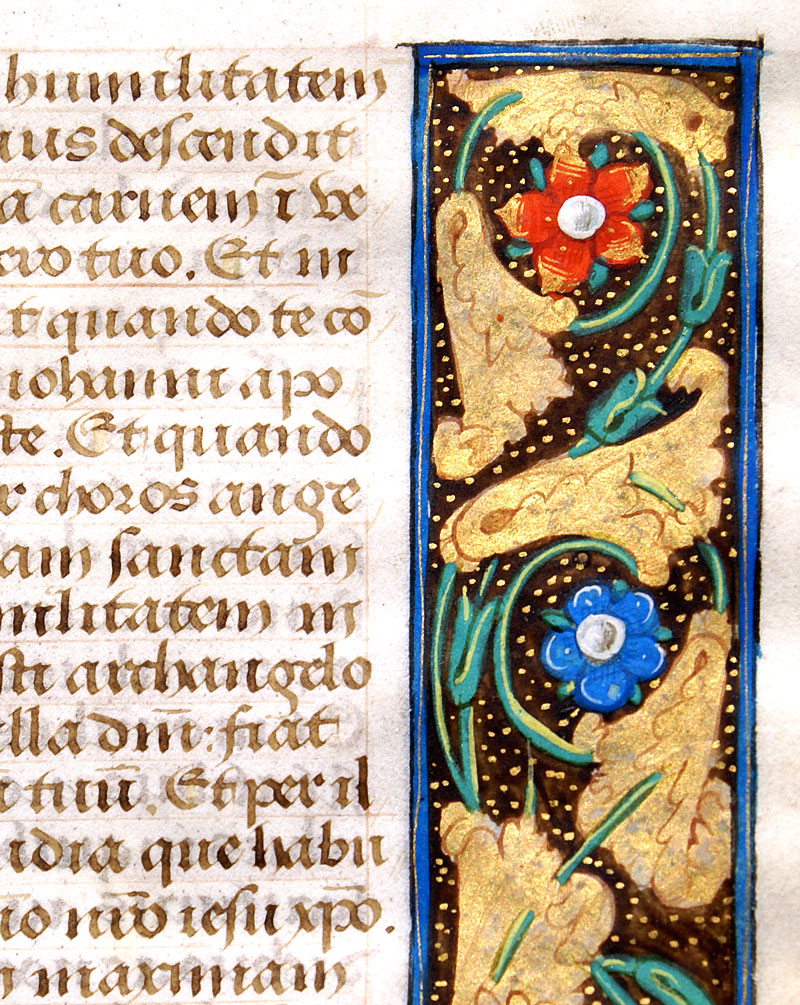 humilitatem
ius descendit
ā carnem ī ve
ervo tuo. Et in
t quando te cō
iohanni apo
te. Et quando
r choros ange
am sanctam
militatem in
sti archangelo
ella dm̄: fiat
tuū. Et per il
idia que habu
io nr̄o iesu xp̄o.
maximam